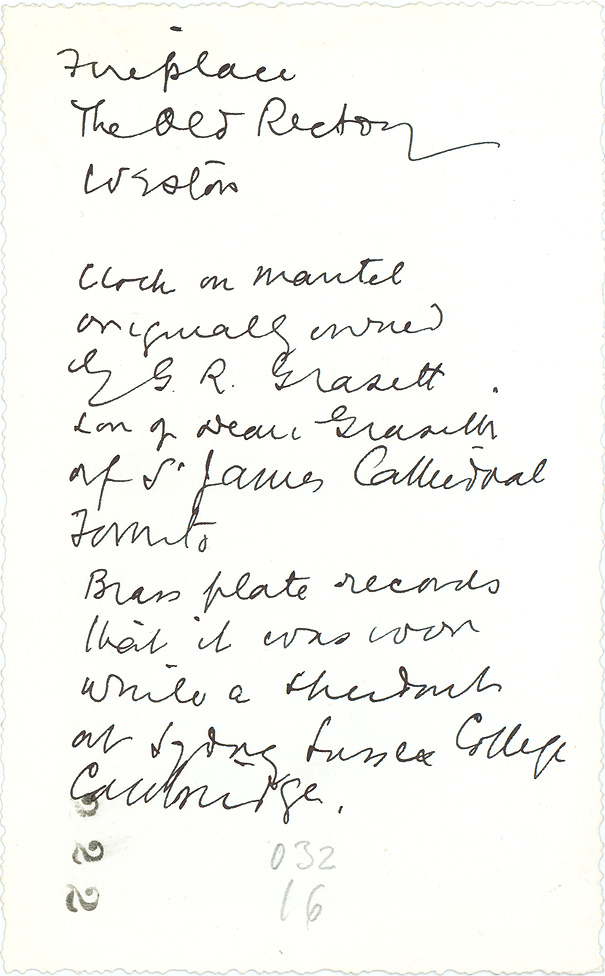 Fireplace
The Old Rectory
Weston
Clock on mantel
originally owned
by G. R. Grasett.
son of Dean Grasett
of St James Cathedral
Toronto
Brass plate records
that it was won
while a student
at Sydney Sussex College
Cambridge.
032
16
22